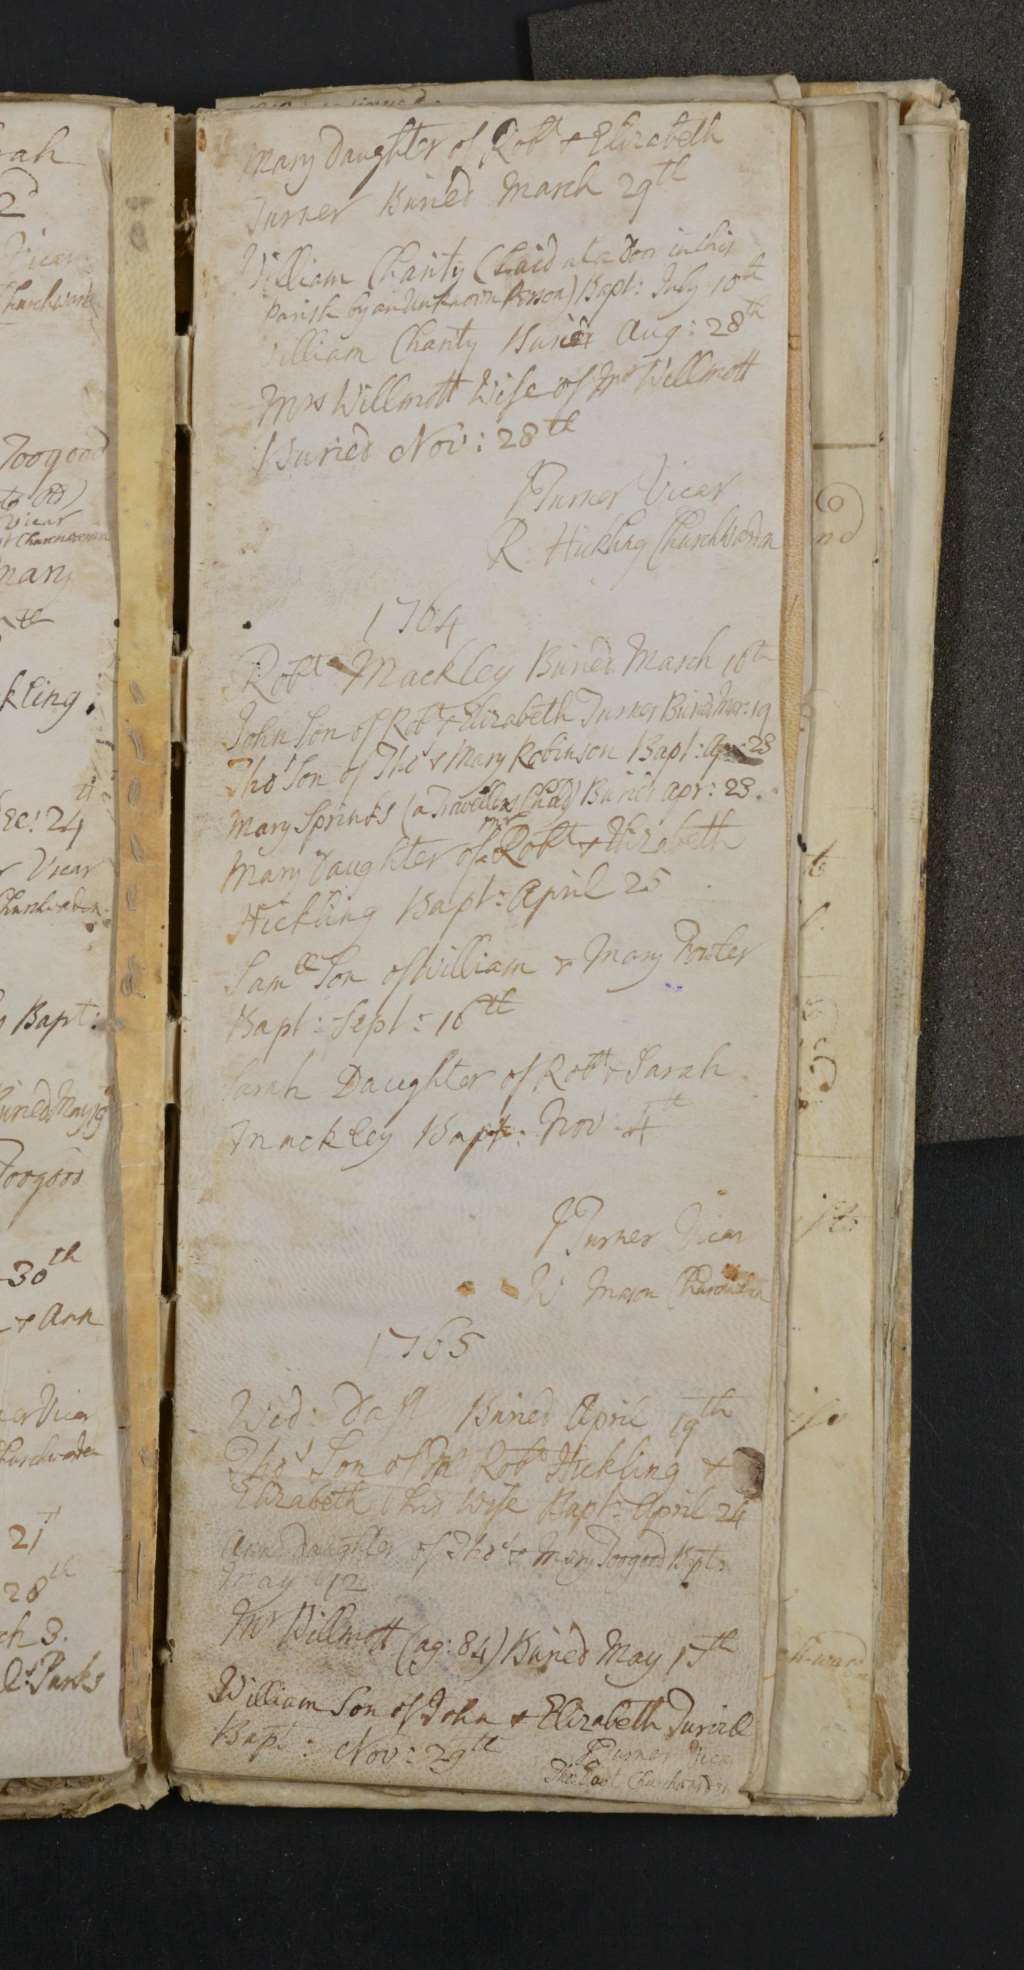 Mary Daughter of Robt & Elizabeth
Turner Buried March 29th
William Charity (Laid at a Door in this
Parish by an unknown Person) Bapt: July 10th
William Charity Buried Aug: 28th
Mrs Willmott Wife of Mr Willmott
Buried Nov: 28th
J Turner Vicar
R Hickling Churchwarden
1764
Robt Mackley Buried March 16th
John Son of Robt & Elizabeth Turner Buried Mar: 19
Thos Son of Thos & Mary Robinson Bapt: Apr: 23
Mary Sprinks (a Travellers Child) Buried Apr: 23.
Mary Daughter of Mr Robt & Elizabeth
Hickling Bapt: April 25
Samll Son of William & Mary Fowler
Bapt: Sept: 16th
Sarah Daughter of Robt & Sarah
Mackley Bapt: Nov 4th
J Turner Vicar
W Mason Churchwarden
1765
Wid: Daft Buried April 19th
Thos Son of Mr Robt Hickling &
Elizabeth his Wife Bapt: April 24
Ann Daughter of Thos & Mary Toogood Bapt:
May 12
Mr Willmott (ag: 84) Buried May 17th
William Son of John & Elizabeth
Bapt: Nov: 29th
J Turner Vicar
Thos Churchwarden
Toogood
Vicar
mary
kling.
Dec: 24
Vicar
Bapt:
Buried May 19
Toogood
30th
& Ann
Vicar
21
28th
ch 3.
Parks